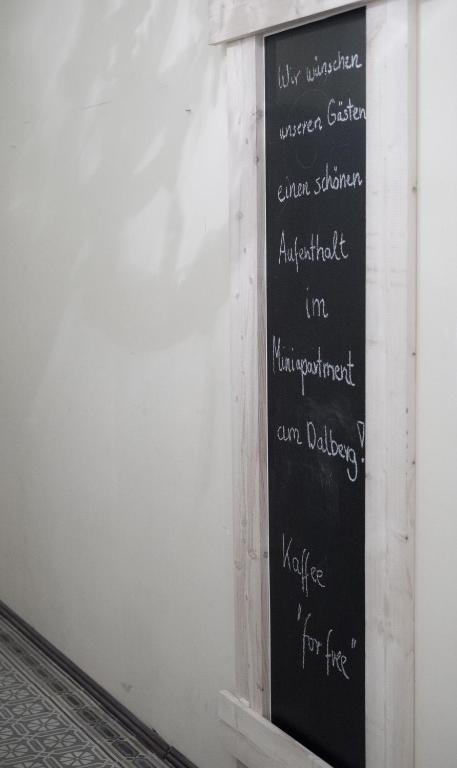 Wir wünschen
unseren Gästen
einen schönen
Aufenthalt
im
Miniapartment
am Dalberg!
Kaffee
"for free"